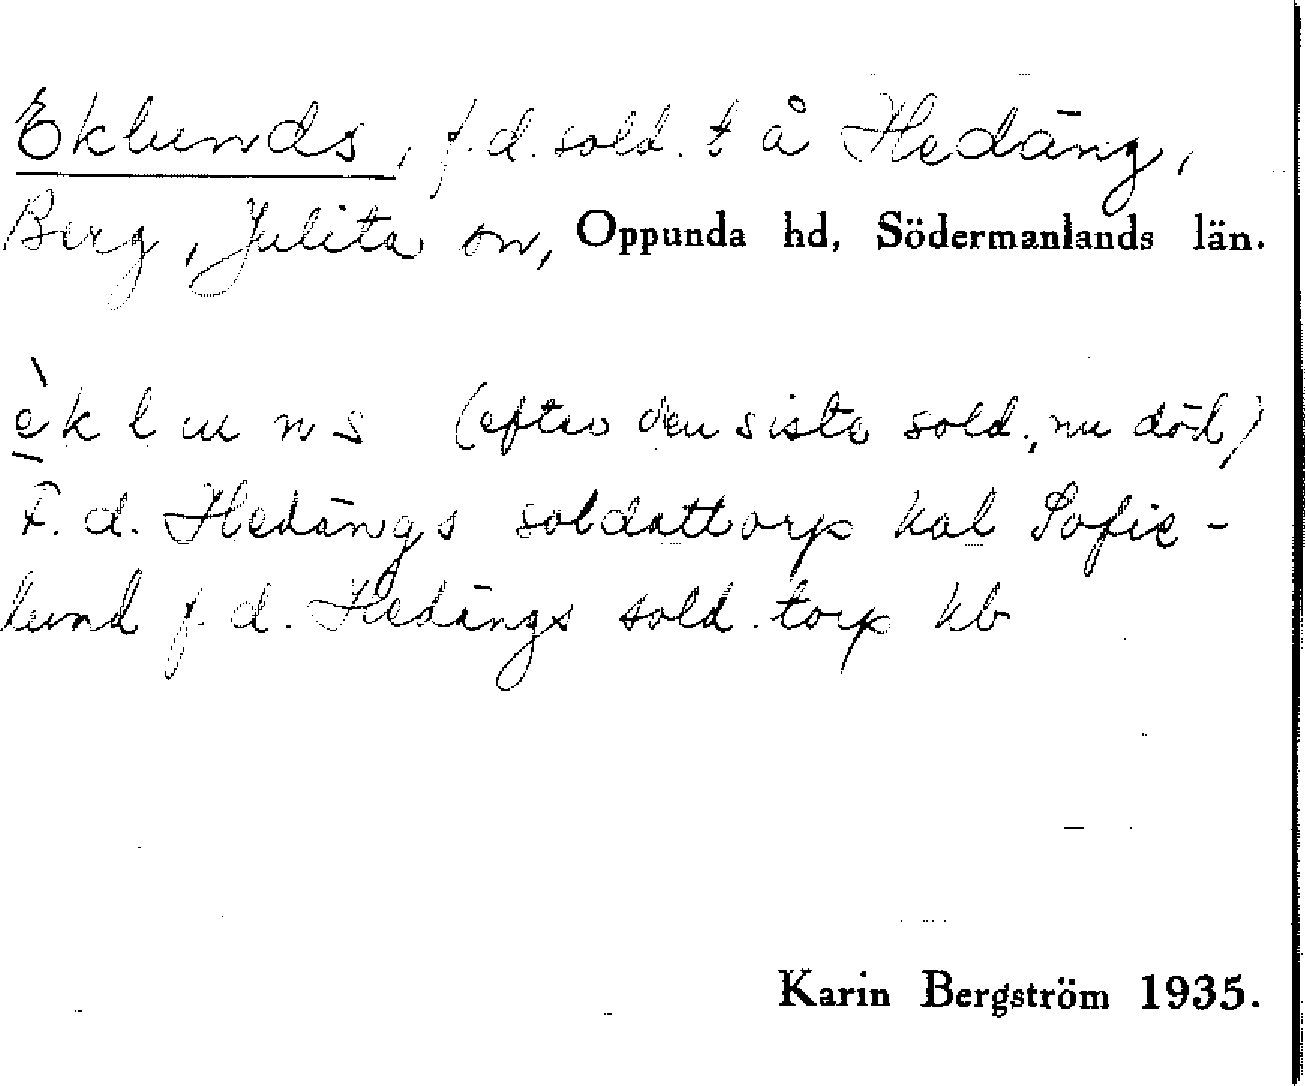 Eklunds, f.d. sold. t å Hedäng,
Berg, Julita sn, Oppunda hd, Södermanlands län.
èk l u n s (efter den siste sold., nu död)
F. d. Hedängs soldattorp kal Sofie-
lund f. d. Hedängs sold. torp kb
Karin Bergström 1935.